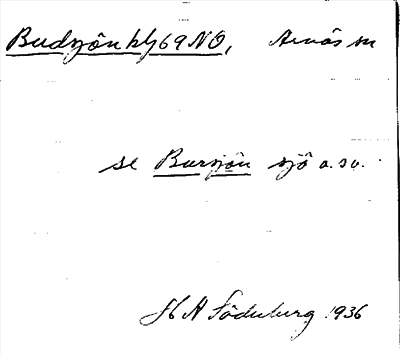 Budsjön bl 69 NO, Arnäs sn
se Bursjön sjö a. sn.
H A Söderberg 1936